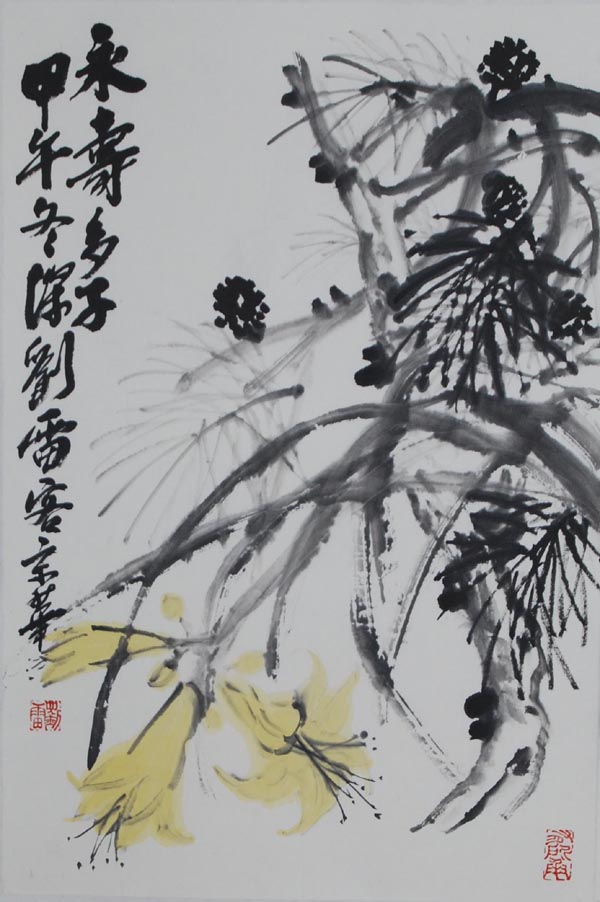 永壽多子
甲午冬深劉雷客京華
劉雷